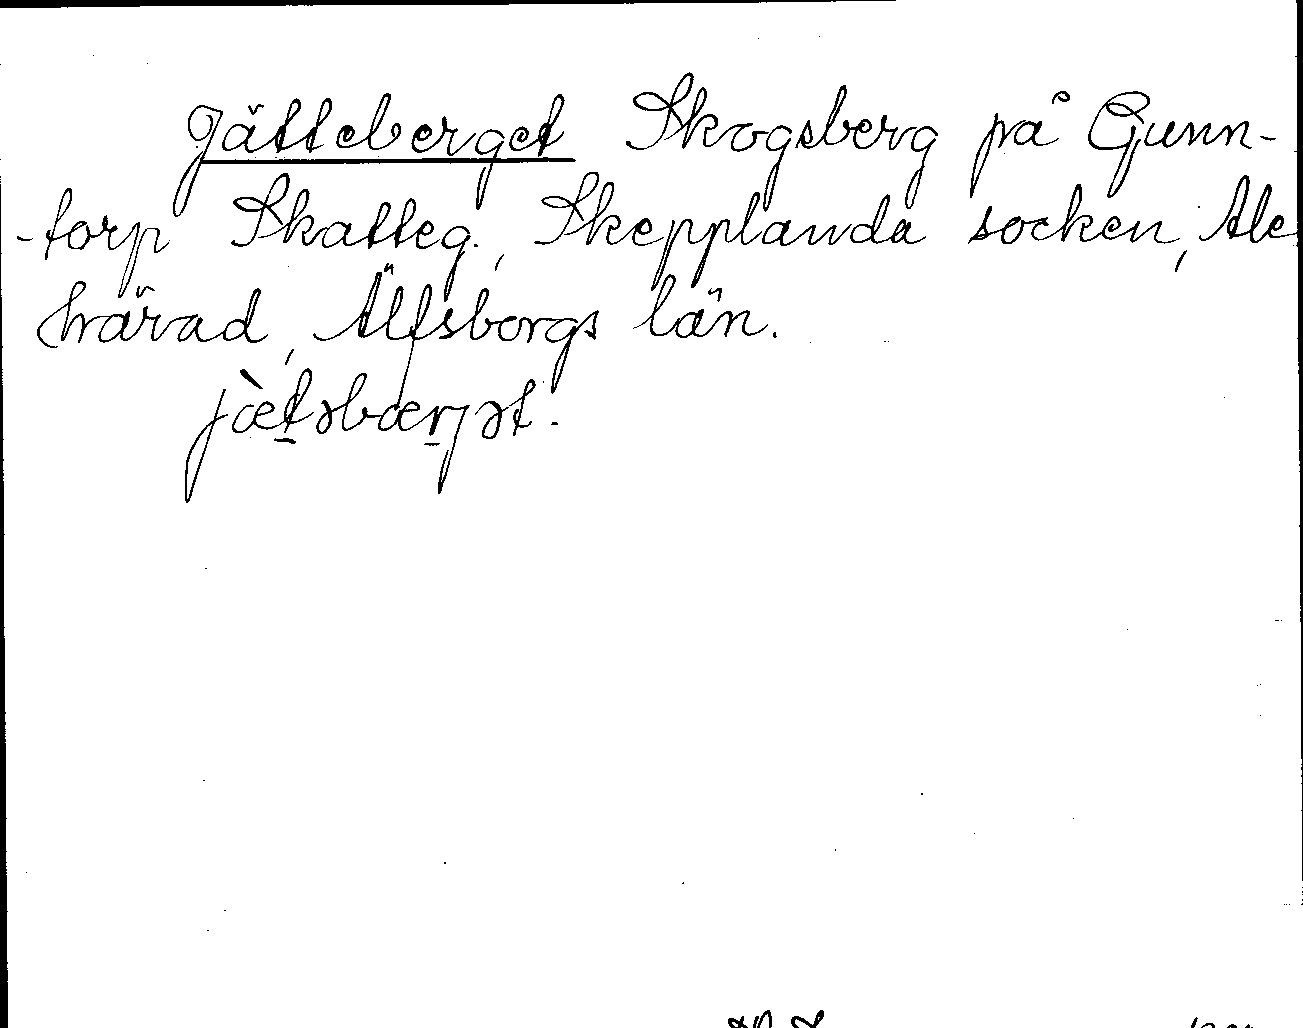 Jätteberget Skogsberg på Gunn-
-torp Skatteg., Skepplanda socken, Ale
härad, Älfsborgs län.
jæ̀t̲əbær̲jət.